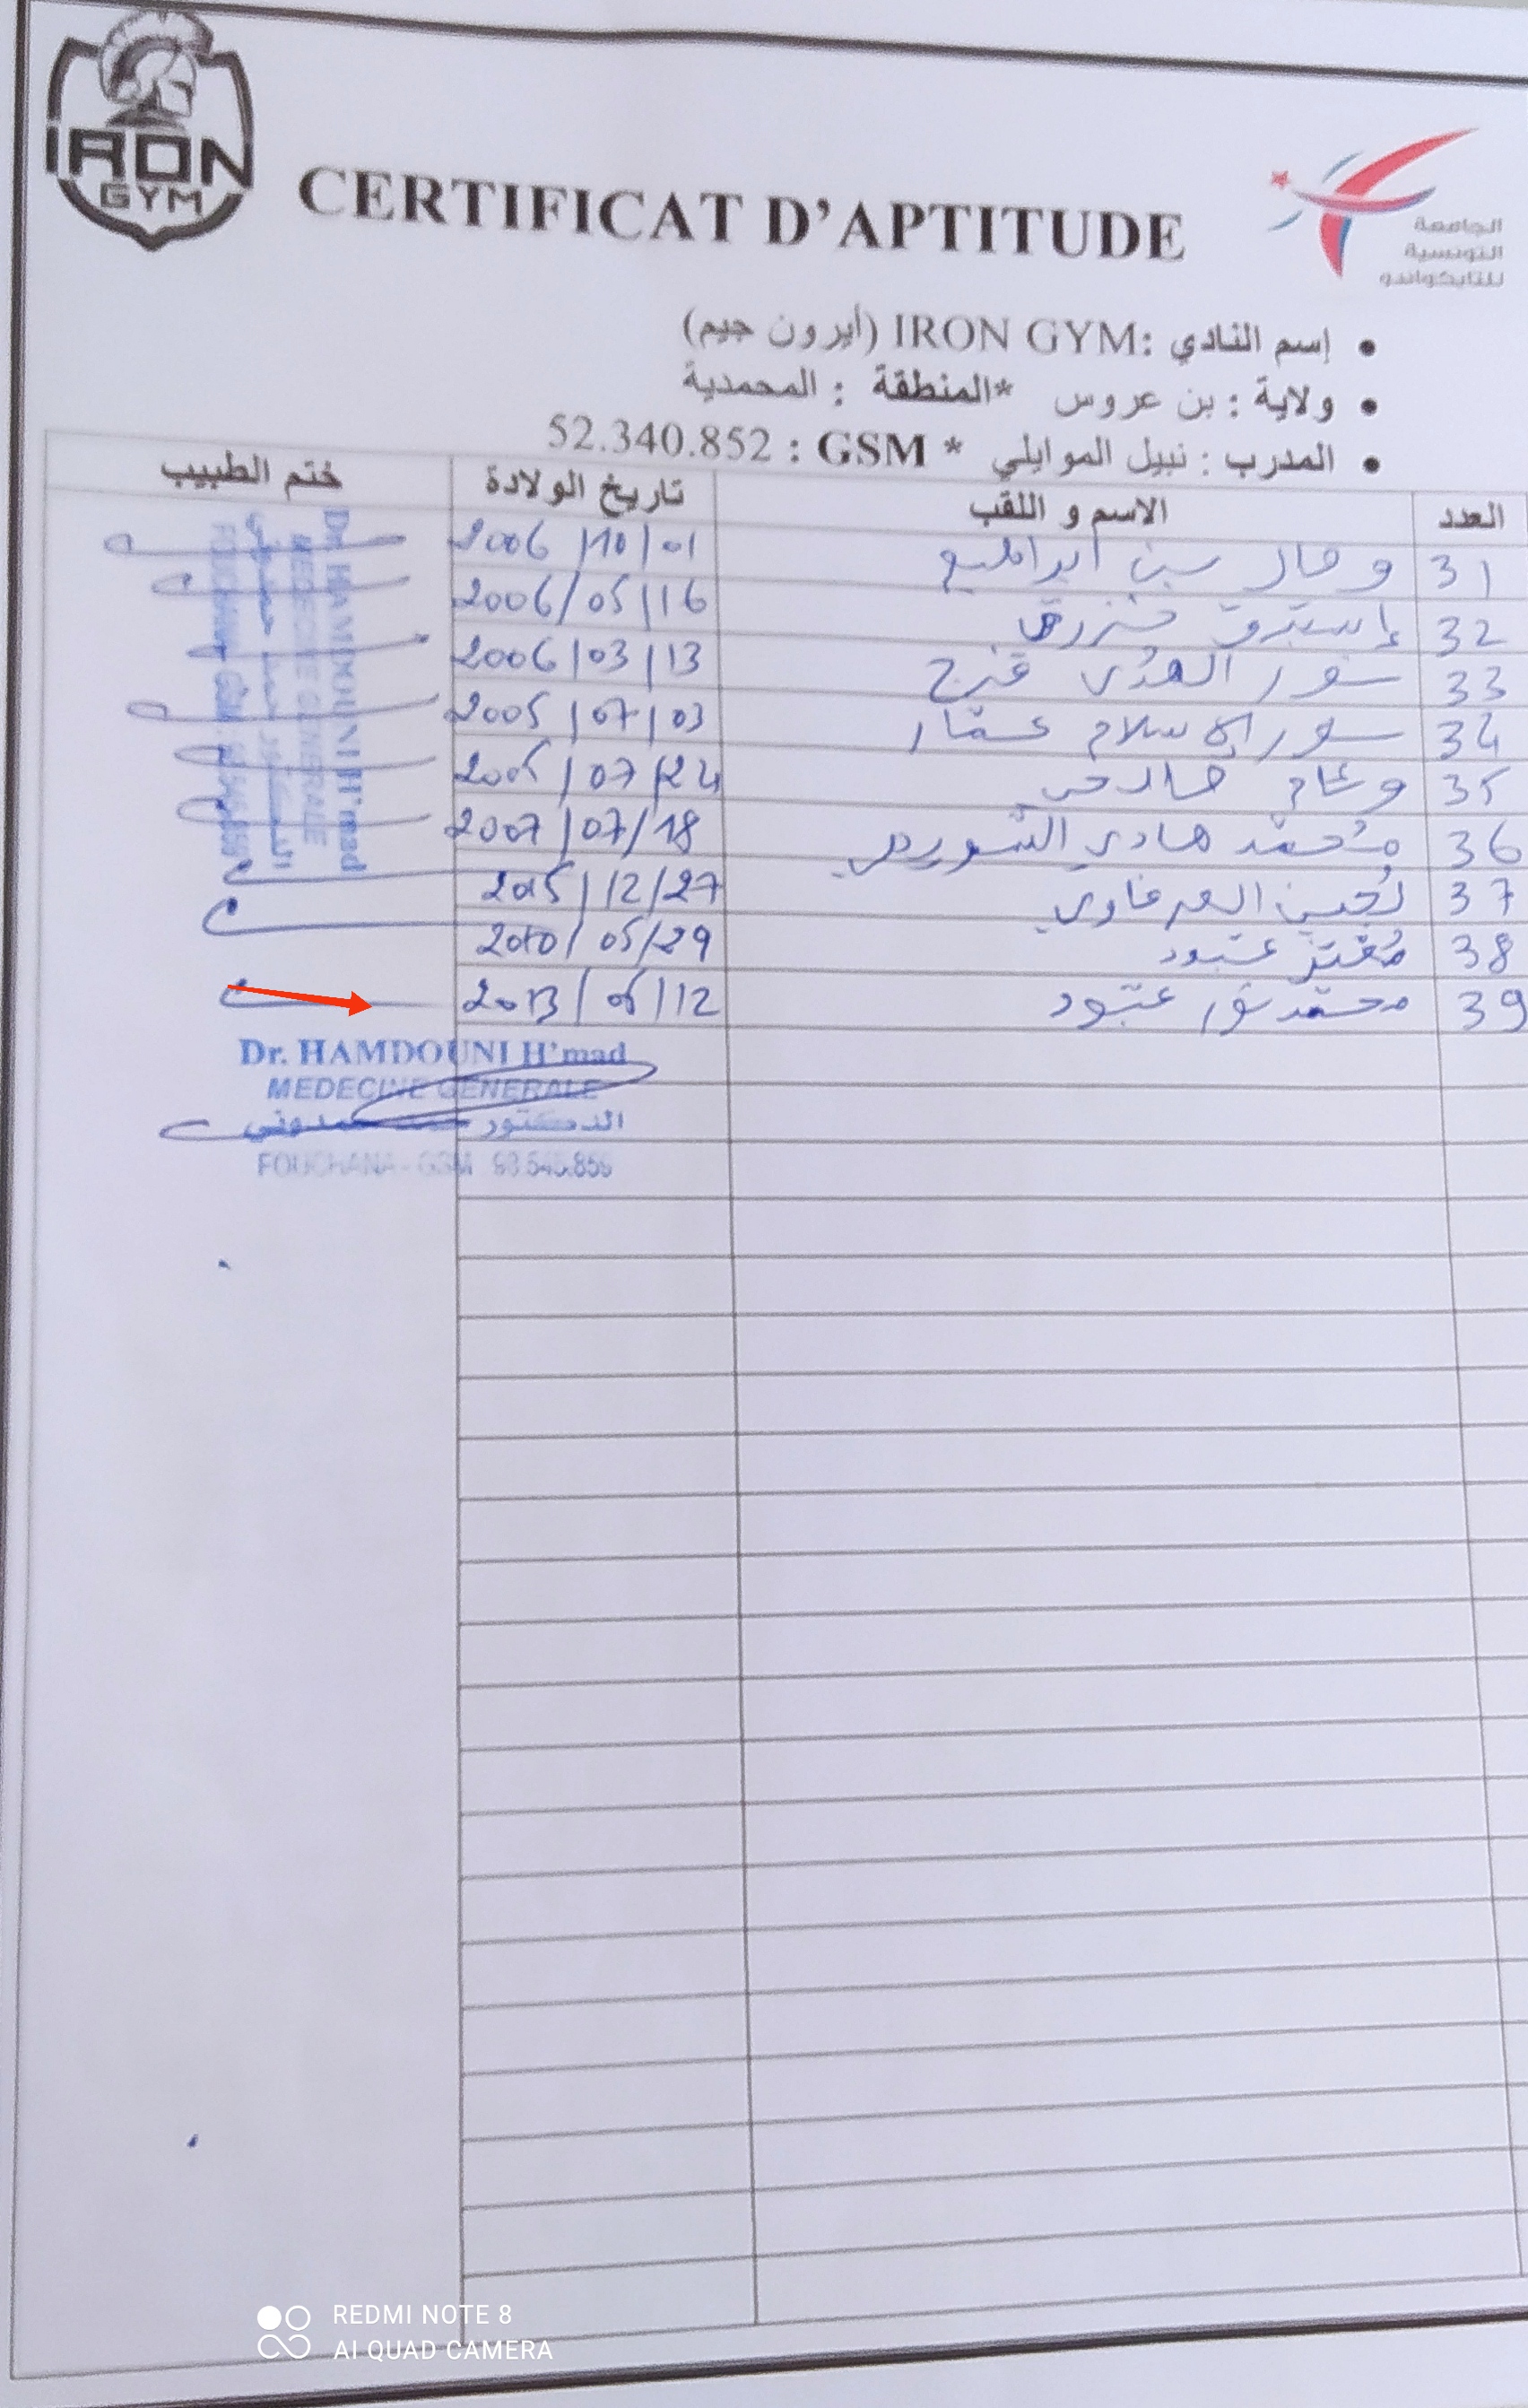 IRON
GYM
CERTIFICAT D'APTITUDE
الجامعة
التونسية
للتايكواندو
• إسم النادي :IRON GYM (أيرون جيم)
• ولاية : بن عروس *المنطقة : المحمدية
• المدرب : نبيل الموايلي * GSM : 52.340.852
العدد الاسم و اللقب تاريخ الولادة ختم الطبيب
31 بن ابراهيم 2006/10/01
32 إستبرق 2006/05/16
33 نور الهدى فرج 2006/03/13
34 نور الإسلام عمار 2005/07/03
35 وئام 07/24
36 محمد هادي 2007/07/18
37 لجين العرفاوي 2015/12/27
38 معتز عبود 2010/05/29
39 محمد نور عبود 2013/12
Dr. HAMDOUNI H'mad
MEDECINE GENERALE
Dr. HAMDOUNI H'mad
MEDECINE GENERALE
الدكتور حمدوني
FOUCHANA - GSM
REDMI NOTE 8
AI QUAD CAMERA